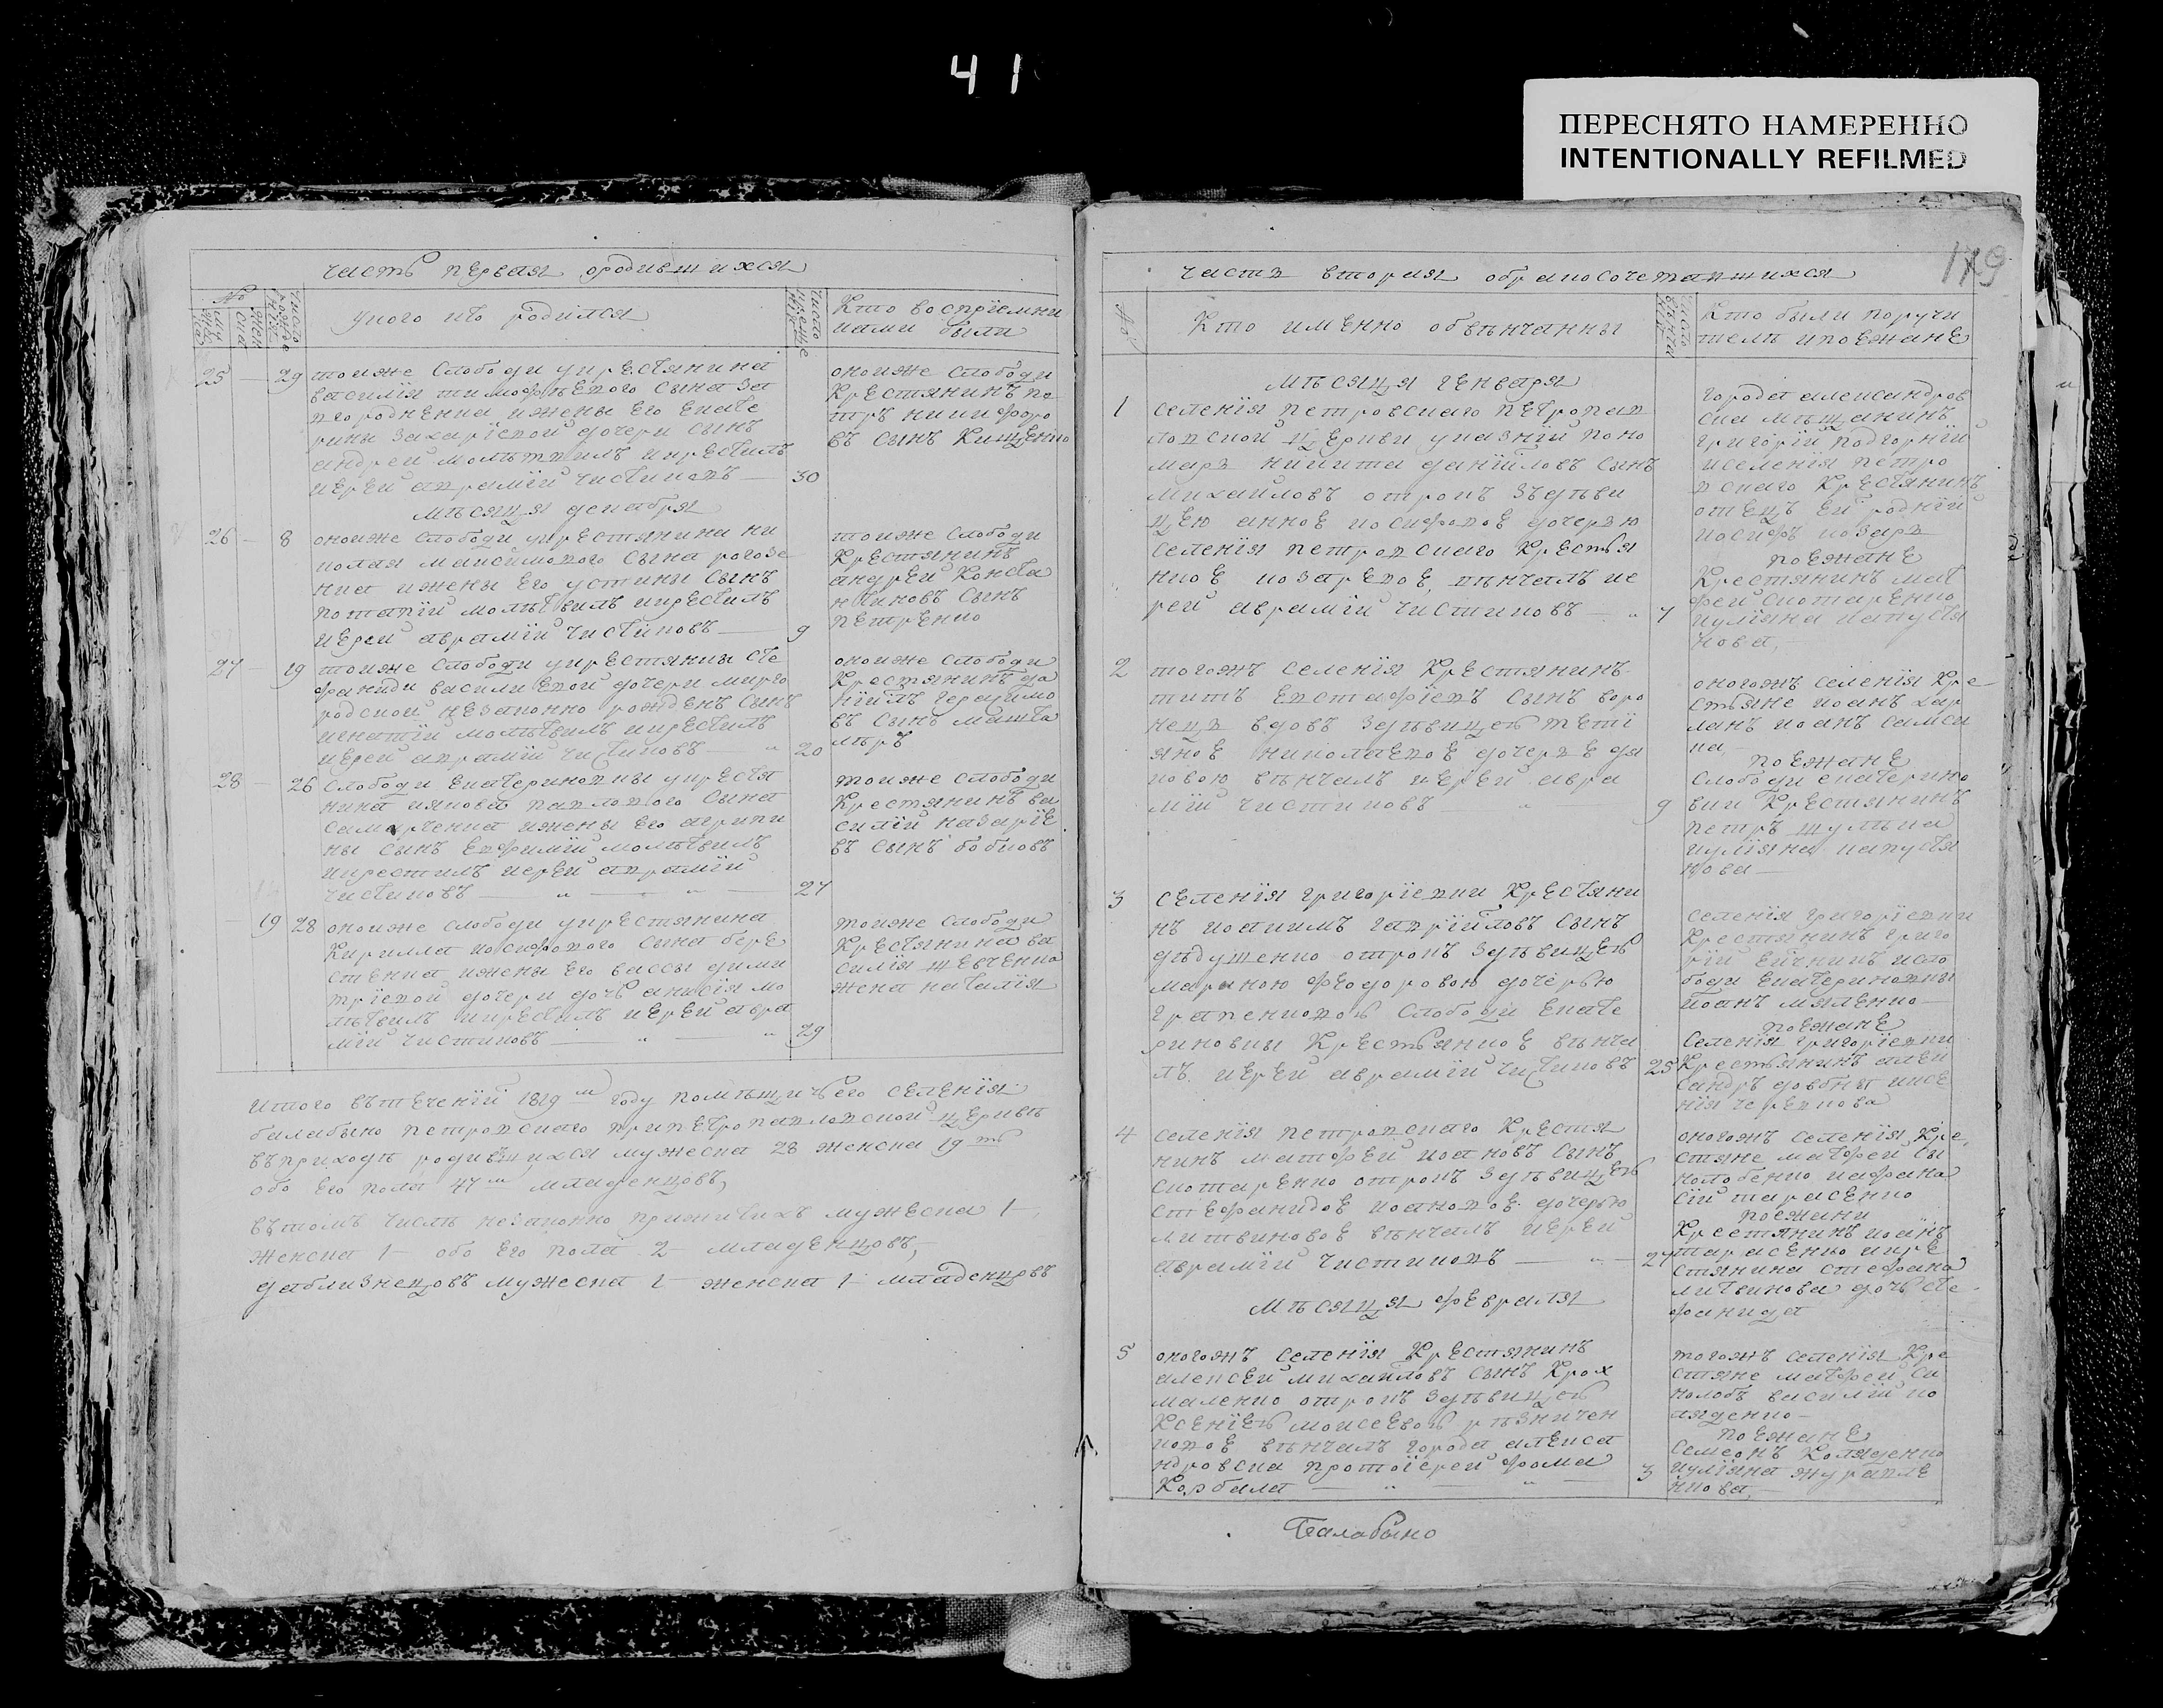 41
ПЕРЕСНЯТО НАМЕРЕННО
INTENTIONALLY REFILMED
179
часть первая ородившихся
№
число рождения
у кого кто родился
число крещения
Кто восприемни
ками были
25 29 тоиже слободи укрестянина
василия тимофѣевого сына за
вгородненка ижены его екате
рины захарїевой дочери сынъ
андрей молитвилъ икрестилъ
иерей аврамїй чистиковъ 30
оноиже слободи
Крестянинъ пе
тръ никифоро
въ сынъ Кищенко
мѣсяця декабря
26 8 оноиже слободи укрестянина ни
колая максимового сына рогозе
нка ижены его устины сынъ
потапїй молитвилъ икрестилъ
иерей аврамїй чистиковъ 9
тоиже слободи
Крестянинъ
андрей Конста
нтиновъ сынъ
петренко
27 19 тоиже слободи укрестянки сте
фаниди василиевой дочери мирго
родской незаконно рожденъ сынъ
игнатїй молитвилъ икрестилъ
иерей аврамїй чистиковъ 20
оноиже слободи
Крестянинъ да
нїилъ герасимо
въ сынъ машта
лѣръ
28 26 слободи екатериновки укрестя
нина якова павлового сына
самарченка ижены его агрипи
ны сынъ евфимїй молитвилъ
икрестилъ иерей аврамїй
чистиковъ 27
тоиже слободи
Крестянинъ ва
силїй назарїе
въ сынъ бобковъ
19 28 оноиже слободи укрестянина
Кирилла иосифового сына бере
стенка ижены его вассы дими
трїевой дочери дочь анисїя мо
литвилъ икрестилъ иерей авра
мїй чистиковъ 29
тоиже слободи
Крестянина ва
силїя шевченка
жена наталїя
итого втеченїй 1819 году помѣщичьего селенїя
балабыно петровского припетропавловской церкви
въприходѣ родившихся мужеска 28 женска 19
обоего пола 47 младенцовъ,
вътомъ числѣ незаконно прижитихъ мужеска 1
женска 1 обоего пола 2 младенцовъ,
даблизнецовъ мужеска 1 женска 1 младенцовъ
часть вторая обракосочетавшихся
№
Кто именно обвѣнчанны
Кто были поручи
тели ипоежане
мѣсяця генваря
1 селенїя петровского петропав
ловской церкви указнїй поно
марь никита данїиловъ сынъ
михайловъ отрокъ здѣви
цею анною иосифовою дочерью
селенїя петровского Крестья
нкою козаревою, вѣнчалъ ие
рей аврамїй чистиковъ 7
города александров
ска мѣщанинъ
григорїй подгорнїй
иселенїя петро
вского Крестянинъ
отецъ ей роднїй
иосифъ козарь
поежане
Крестянинъ мат
фей скотаренко
иулїяна капустя
нова,
2 тогожъ селенїя Крестянинъ
титъ евстафїевъ сынъ воро
нецъ вдовъ здѣвицею тетї
яною николаевою дочерью дя
ковою вѣнчалъ иерей авра
мїй чистиковъ 9
оногожъ селенїя Кре
стьяне иоанъ хар
ланъ иоанъ самси
ка
поежане
слободи екатерино
вки Крестянинъ
петръ шулька
иулїяна капустя
нова
3 селенїя григорїевки Крестяни
нъ иоакимъ гаврїиловъ сынъ
дѣдушенко отрокъ здѣвицею
мариною феодоровою дочерью
грапенковою слободи екате
риновки Крестьянкою вѣнча
лъ иерей аврамїй чистиковъ 25
селенїя григорїевки
Крестянинъ григо
рїй ... исло
боди екатериновки
иоанъ маленко
поежане
селенїя григорїевки
Крестьянинъ алек
сандръ довбня иксе
нїя черевкова
4 селенїя петровского Крестья
нинъ матфей иоановъ сынъ
скотаренко отрокъ здѣвицею
стефанидою иоановою дочерью
литвиновою вѣнчалъ иерей
аврамїй чистиковъ 27
оногожъ селенїя Кре
стяне матфей си
нолобенко иафана
сїй тарасенко
поежани
Крестянинъ иоанъ
тарасенко икре
стянина стефана
литвинова дочь сте
фанида
мѣсяця февраля
5 оногожъ селенїя Крестянинъ
алексей михайловъ сынъ Крох
маленко отрокъ здѣвицею
Ксенїею моисеевою рѣзничен
ковою вѣнчалъ города алекса
ндровска протоїерей фома
Корбала 3
тогожъ селенїя Кре
стяне матфей си
нолобъ василїй ко
ляденко
поежане
семеонъ Коляденко
иулїяна журавле
нкова,
Балабыно